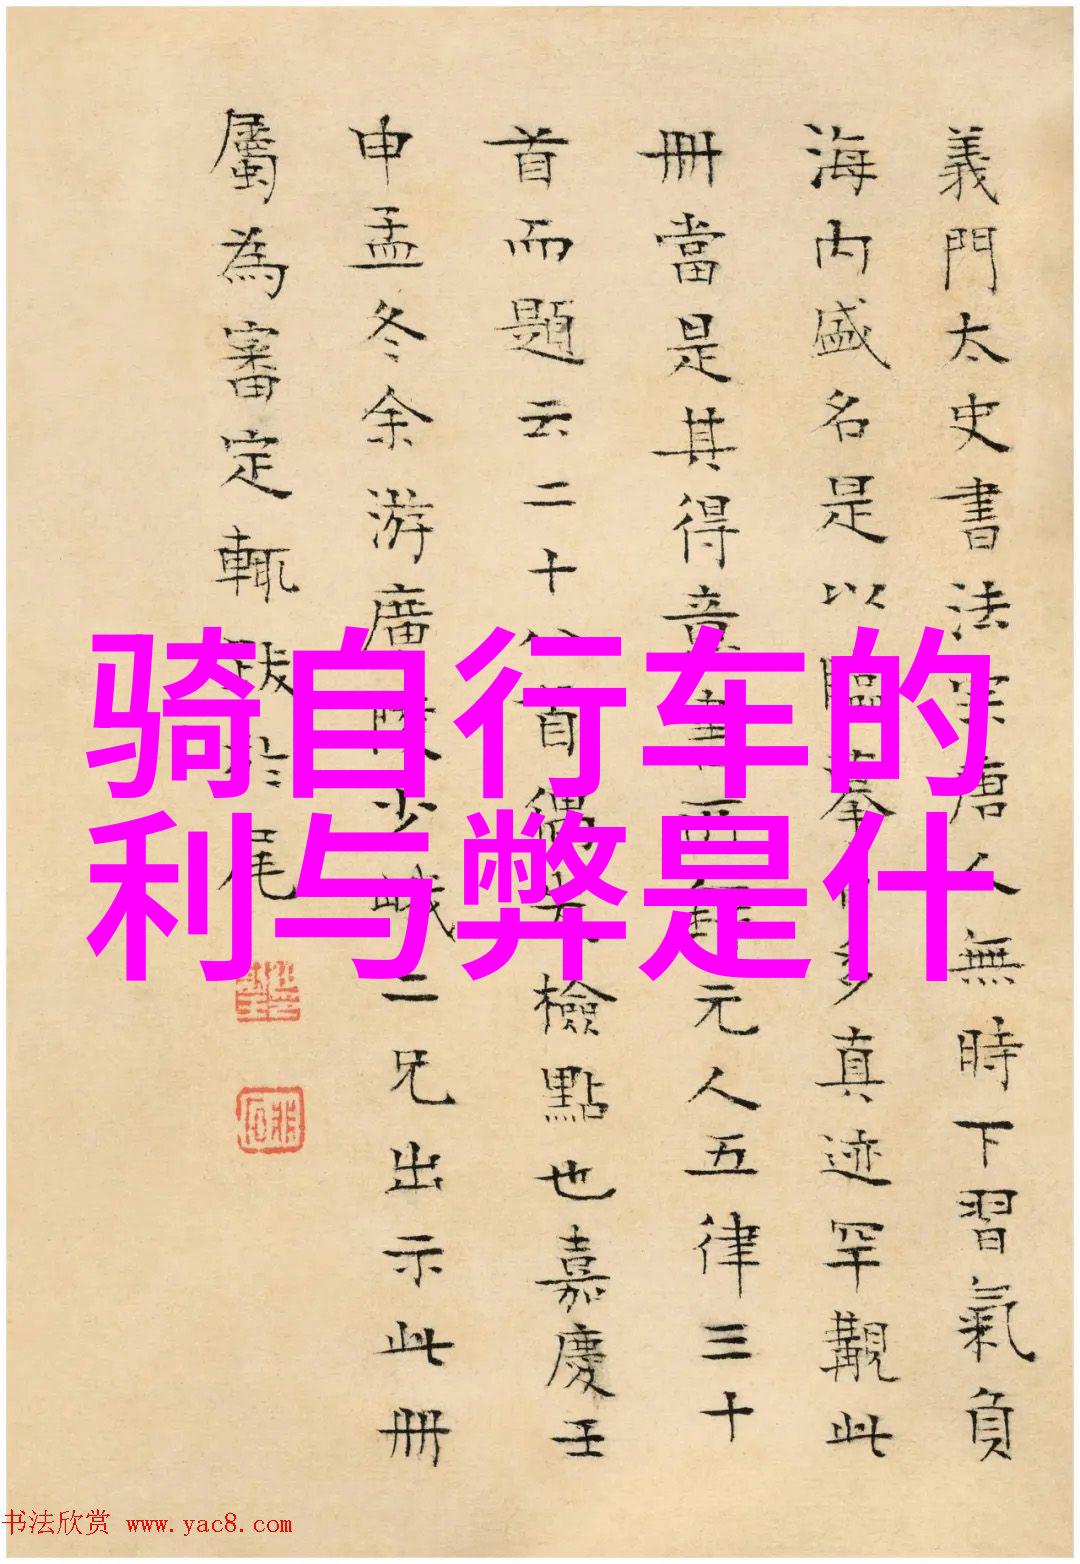 義門太史書法宗唐人無時下習氣負
海内盛名是以臨摹多真迹罕觀此
冊當是其得意書西元人五律三十
首而題云二十八首偶失檢點也嘉慶壬
申孟冬余游廣陵少峨二兄出示此冊
屬為審定輒跋於尾
骑自行车的
利与弊是什
书法欣赏 www.yac8.com